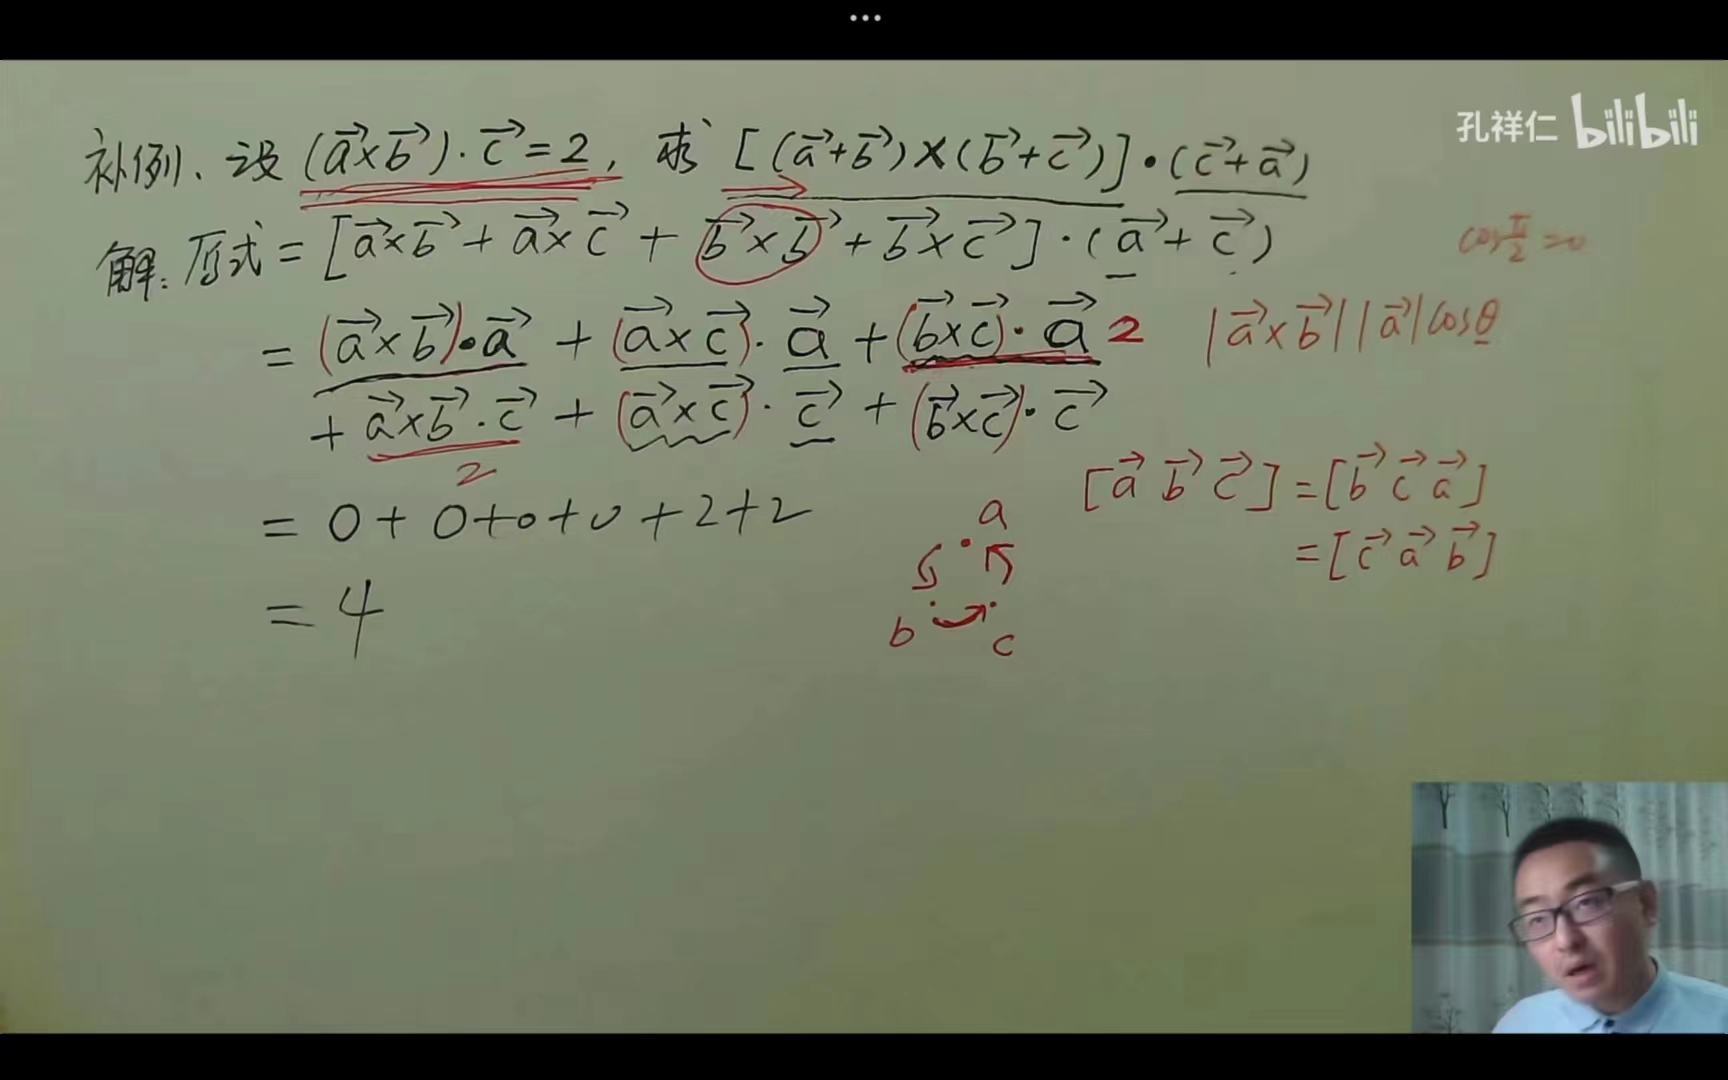 孔祥仁 bilibili
补例、设 (a⃗×b⃗)·c⃗=2, 求 [(a⃗+b⃗)×(b⃗+c⃗)]·(c⃗+a⃗)
解: 原式 = [a⃗×b⃗ + a⃗×c⃗ + b⃗×b⃗ + b⃗×c⃗]·(a⃗+c⃗)
cos π/2 =0
= (a⃗×b⃗)·a⃗ + (a⃗×c⃗)·a⃗ + (b⃗×c⃗)·a⃗ 2
|a⃗×b⃗||a⃗|cosθ
+ a⃗×b⃗·c⃗ + (a⃗×c⃗)·c⃗ + (b⃗×c⃗)·c⃗
2
[a⃗ b⃗ c⃗] = [b⃗ c⃗ a⃗]
= 0+0+0+0+2+2
a
= [c⃗ a⃗ b⃗]
= 4
b c